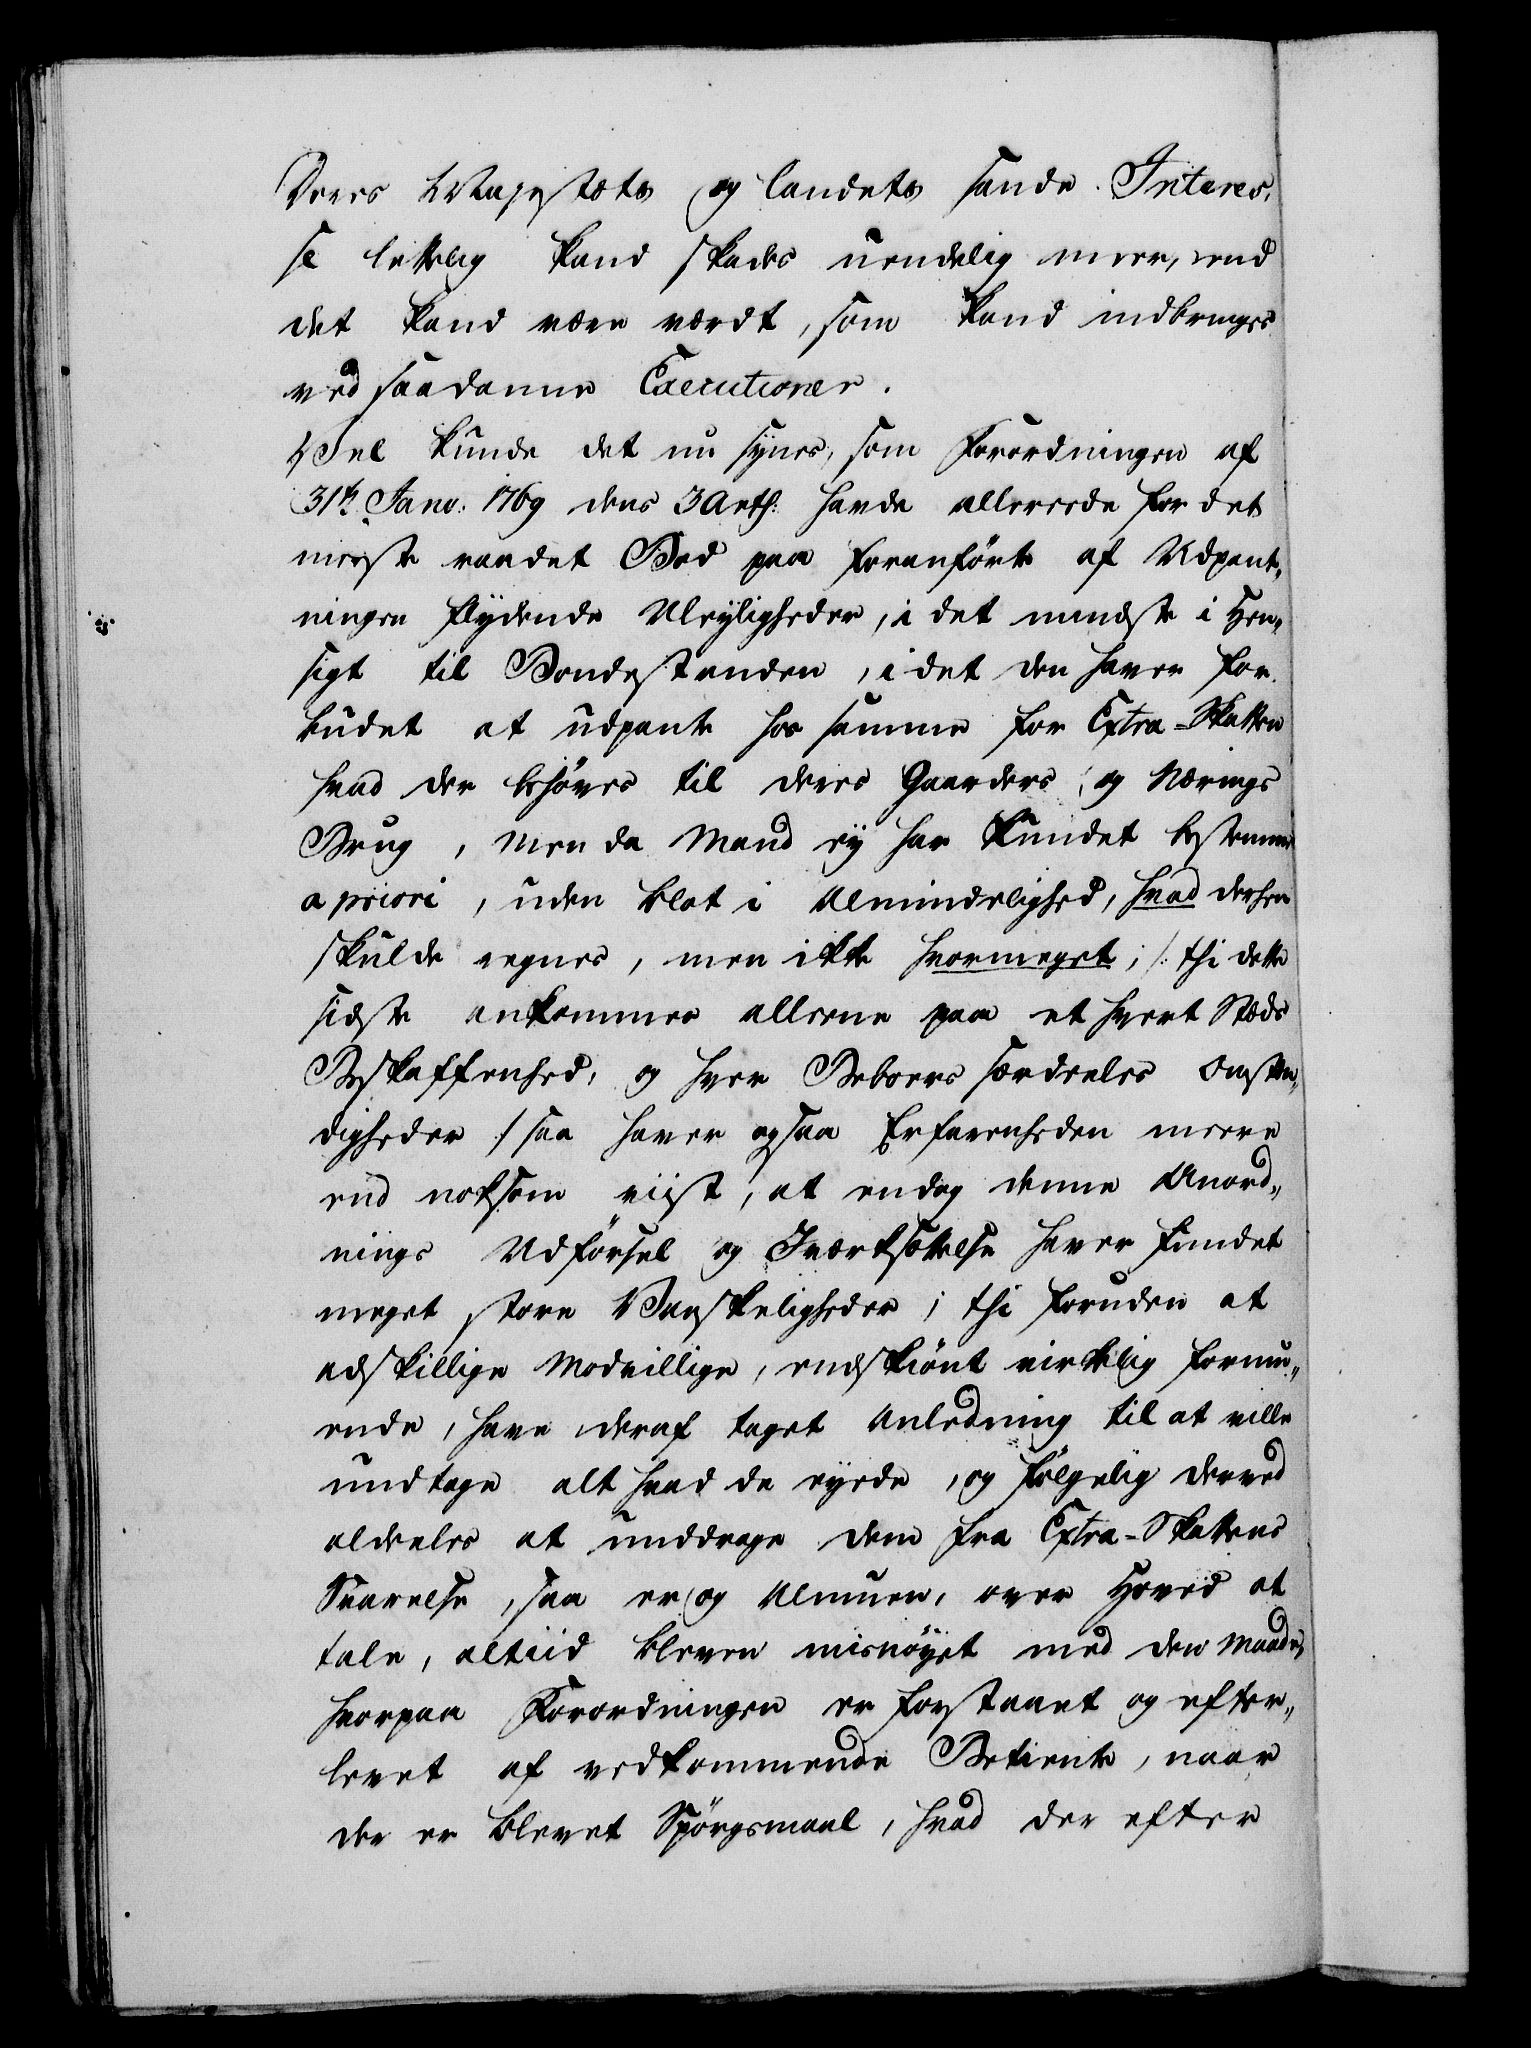 Deres Majestæts og Landets sande Interes,
se lettelig kand skades uendelig meer, end
det kand være værdt, som kand indbringes
ved saadanne Executioner.
Vel kunde det nu synes, som Forordningen af
31te Janv: 1769 dens 3 Art: havde allereede for det
meeste raadet Bod paa foranførte af Udpant„
ningen flydende Uleyligheder, i det mindste i Hen„
sigt til Bondestanden, i det den haver for„
budet at udpante hos samme for Extra-Skatten
hvad der behøves til deres Gaarders og Nærings
Brug, men da Mand ey har kundet bestemme
a priori, uden blot i Almindelighed, hvad derhen
skulde regnes, men ikke hvormeget; /: thi dette
sidste ankommer alleene paa et hvert Stæds
Beskaffenhed, og hver Beboers særdeeles Omstæn„
digheder :/ saa haver ogsaa Erfarenheden meere
end noksom viist, at endog denne Anord„
nings Udførsel og Iværksættelse haver fundet
meget store Vanskeligheder; thi foruden at
adskillige Modvillige, endskiønt virkelig formu„
ende, have deraf taget Anledning til at ville
undtage alt hvad de eyede, og følgelig derved
aldeeles at unddrage dem fra Extra-Skattens
Svarelse, saa er og Almuen, over Hoved at
tale, altiid bleven misnøyet med den Maade,
hvorpaa Forordningen er forstaaet og efter„
levet af vedkommende Betiente, naar
der er blevet Spørgsmaal, hvad der efter